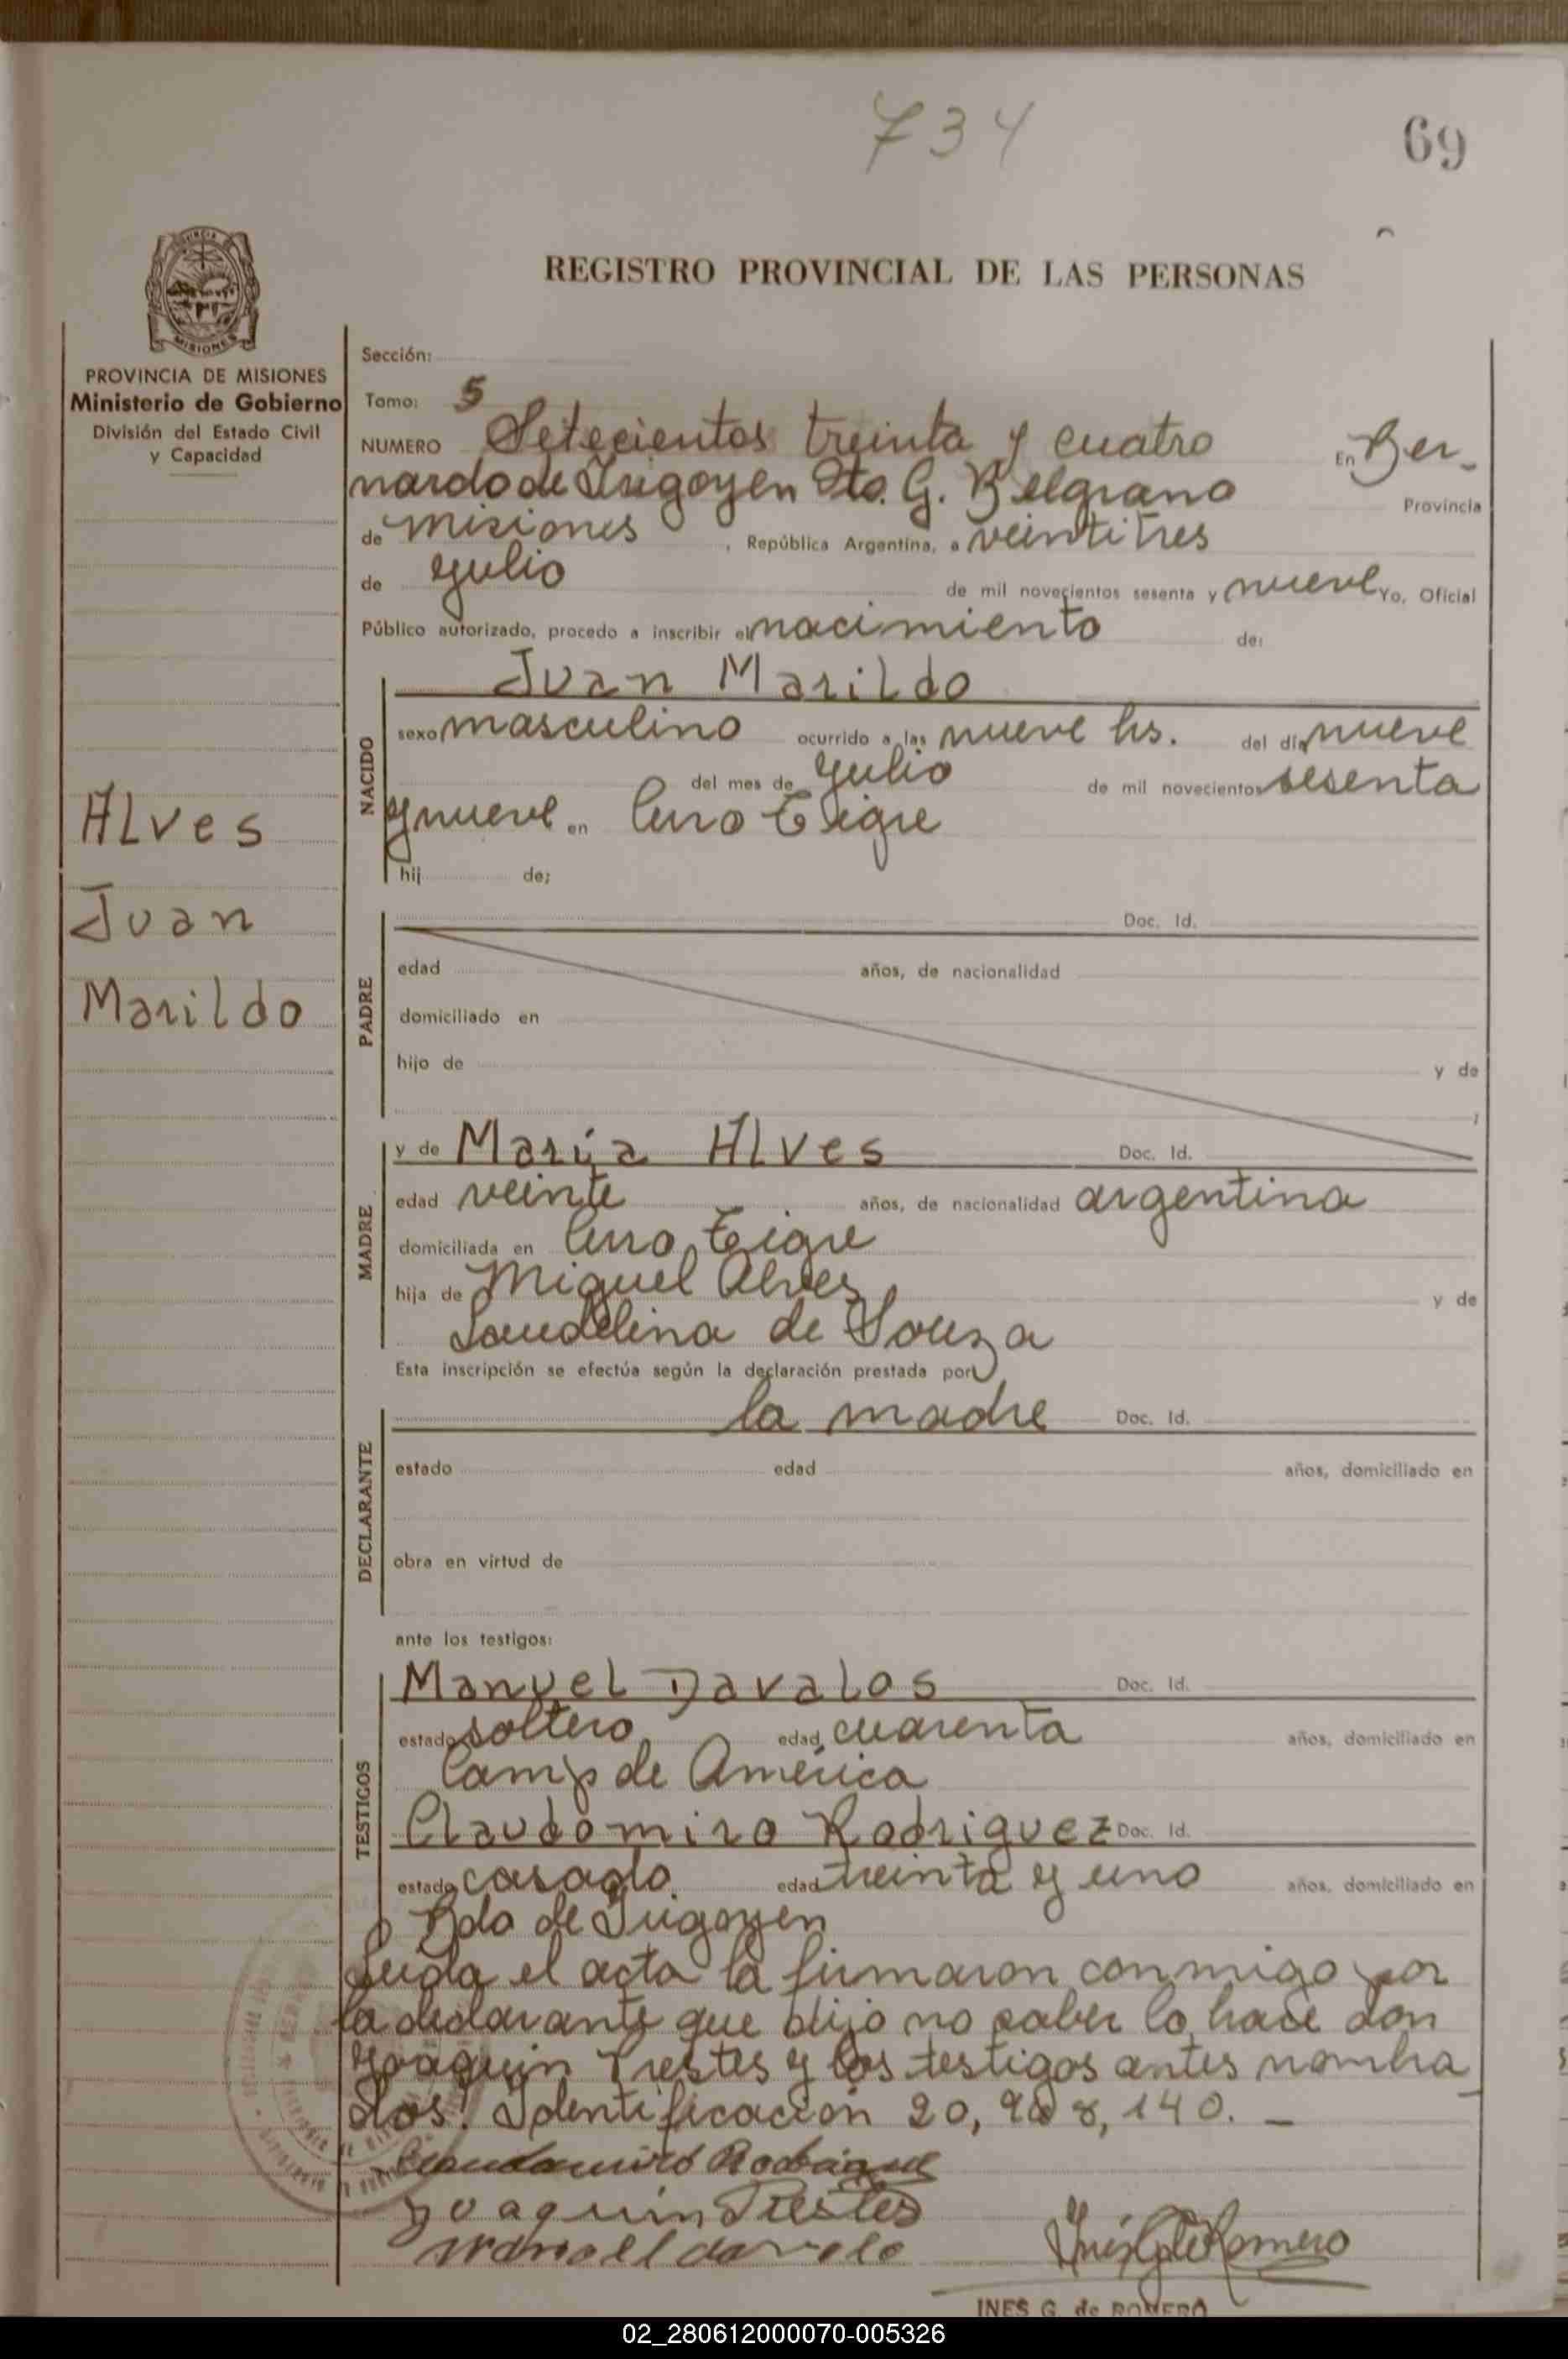 734
69
REGISTRO PROVINCIAL DE LAS PERSONAS
MISIONES
PROVINCIA DE MISIONES
Ministerio de Gobierno
División del Estado Civil
y Capacidad
Alves
Juan
Marildo
Sección:
Tomo: 5
NUMERO Setecientos treinta y cuatro En Ber-
nardo de Irigoyen Dto. G. Belgrano Provincia
de Misiones, República Argentina, a veintitres
de Julio de mil novecientos sesenta y nueve Yo, Oficial
Público autorizado, procedo a inscribir el nacimiento de:
NACIDO
Juan Marildo
sexo masculino ocurrido a las nueve hs. del día nueve
del mes de Julio de mil novecientos sesenta
y nueve en Cerro Tigre
hij de;
PADRE
Doc. Id.
edad años, de nacionalidad
domiciliado en
hijo de y de
;
MADRE
y de María Alves Doc. Id.
edad veinte años, de nacionalidad argentina
domiciliada en Cerro Tigre
hija de Miguel Alves y de
Laudelina de Souza
Esta inscripción se efectúa según la declaración prestada por
DECLARANTE
la madre Doc. Id.
estado edad años, domiciliado en
obra en virtud de
ante los testigos:
TESTIGOS
Manuel Davalos Doc. Id.
estado soltero edad cuarenta años, domiciliado en
Camp de América
Claudomiro Rodriguez Doc. Id.
estado casado edad treinta y uno años, domiciliado en
Bdo de Irigoyen
Leida el acta la firmaron conmigo por
la declarante que dijo no saber lo hace don
Joaquin Prestes y los testigos antes nombra
dos. Identificación 20, 140. -
Claudomiro Rodriguez
Joaquin Prestes
Manoel davalo
Inés G de Romero
INES G. de ROMERO
02_280612000070-005326